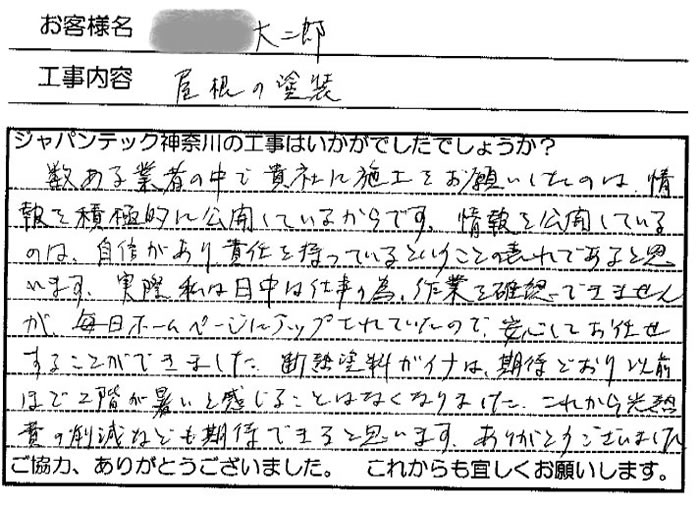 お客様名 大二郎
工事内容 屋根の塗装
ジャパンテック神奈川の工事はいかがでしたでしょうか？
数ある業者の中で貴社に施工をお願いしたのは、情
報を積極的に公開しているからです。情報を公開している
のは、自信があり責任を持っているということの表れであると思
います。実際、私は日中は仕事の為、作業を確認できません
が、毎日ホームページにアップされていたので、安心してお任せ
することができました。断熱塗料ガイナは、期待どおり以前
ほど2階が暑いと感じることはなくなりました。これから光熱
費の削減なども期待できると思います。ありがとうございました
ご協力、ありがとうございました。 これからも宜しくお願いします。